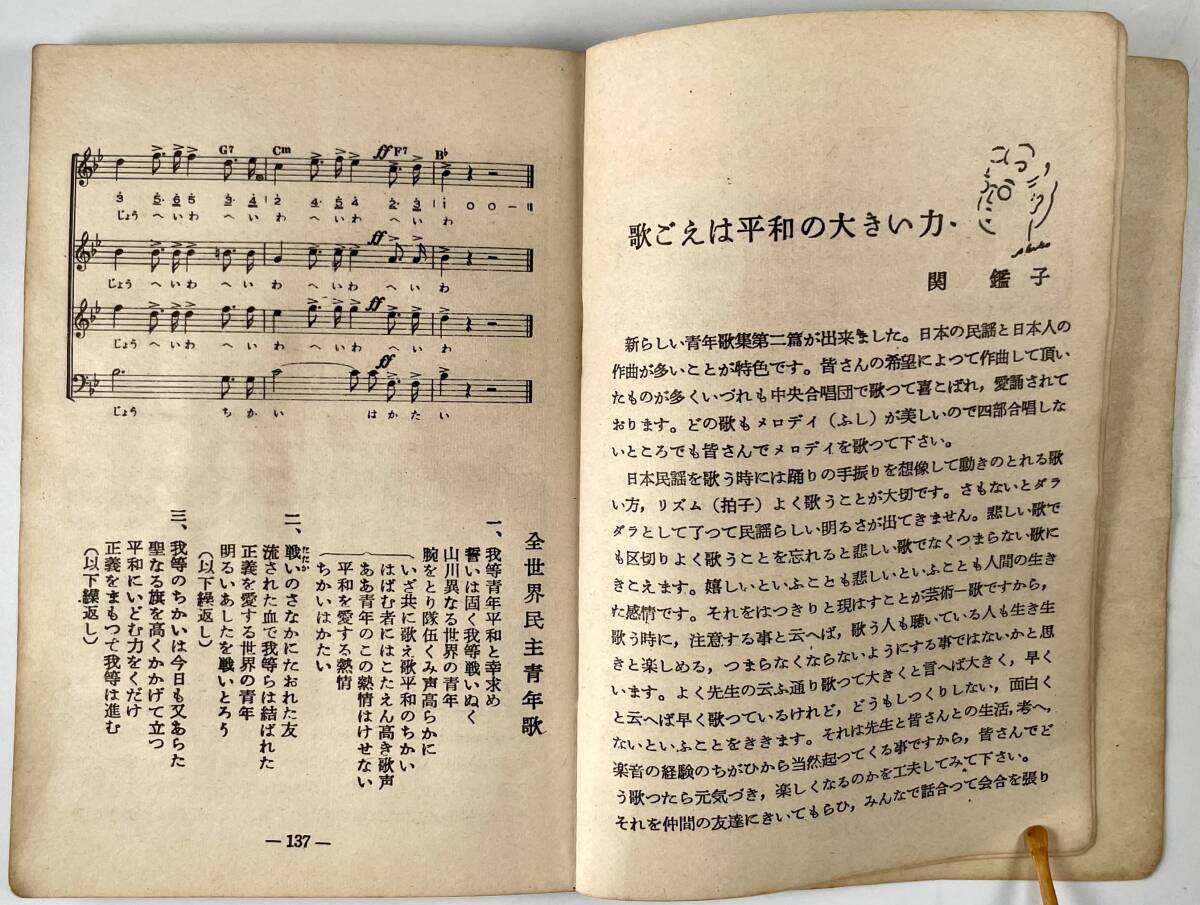 G7 Cm ff F7 B♭
3 5·6 5 3·4 2 4·5 4 2·3 1 0 0 -
じょう へい わ へい わ へい わ へい わ
ff
じょう へい わ へい わ へい わ へい わ
ff
じょう へい わ へい わ へい わ へい わ
ff
じょう ち か い は か た い
全世界民主青年歌
一、我等青年平和と幸求め
誓いは固く我等戦いぬく
山川異なる世界の青年
腕をとり隊伍くみ声高らかに
いざ共に歌え歌平和のちかい
はばむ者にはこたえん高き歌声
ああ青年のこの熱情はけせない
平和を愛する熱情
ちかいはかたい
二、戦いのさなかにたおれた友
たたか
流された血で我等らは結ばれた
正義を愛する世界の青年
明るいあしたを戦いとろう
(以下繰返し)
三、我等のちかいは今日も又あらた
聖なる旗を高くかかげて立つ
平和にいどむ力をくだけ
正義をまもつて我等は進む
(以下繰返し)
— 137 —
歌ごえは平和の大きい力
関 鑑子
新らしい青年歌集第二篇が出来ました。日本の民謡と日本人の
作曲が多いことが特色です。皆さんの希望によつて作曲して頂い
たものが多くいづれも中央合唱団で歌つて喜こばれ，愛誦されて
おります。どの歌もメロデイ（ふし）が美しいので四部合唱しな
いところでも皆さんでメロデイを歌つて下さい。
日本民謡を歌う時には踊りの手振りを想像して動きのとれる歌
い方，リズム（拍子）よく歌うことが大切です。さもないとダラ
ダラとして了つて民謡らしい明るさが出てきません。悲しい歌で
も区切りよく歌うことを忘れると悲しい歌でなくつまらない歌に
きこえます。嬉しいといふことも悲しいといふことも人間の生き
た感情です。それをはつきりと現はすことが芸術一歌ですから，
歌う時に，注意する事と云へば，歌う人も聴いている人も生き生
きと楽しめる，つまらなくならないようにする事ではないかと思
います。よく先生の云ふ通り歌つて大きくと言へば大きく，早く
と云へば早く歌つているけれど，どうもしつくりしない，面白く
ないといふことをききます。それは先生と皆さんとの生活，考へ，
楽音の経験のちがひから当然起つてくる事ですから，皆さんでど
う歌つたら元気づき，楽しくなるのかを工夫してみて下さい。
それを仲間の友達にきいてもらひ，みんなで話合つて会合を張り